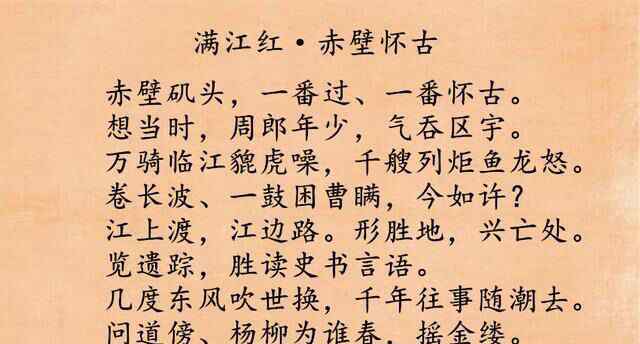 满江红·赤壁怀古
赤壁矶头，一番过、一番怀古。
想当时，周郎年少，气吞区宇。
万骑临江貔虎噪，千艘列炬鱼龙怒。
卷长波、一鼓困曹瞒，今如许？
江上渡，江边路。形胜地，兴亡处。
览遗踪，胜读史书言语。
几度东风吹世换，千年往事随潮去。
问道傍、杨柳为谁春，摇金缕。